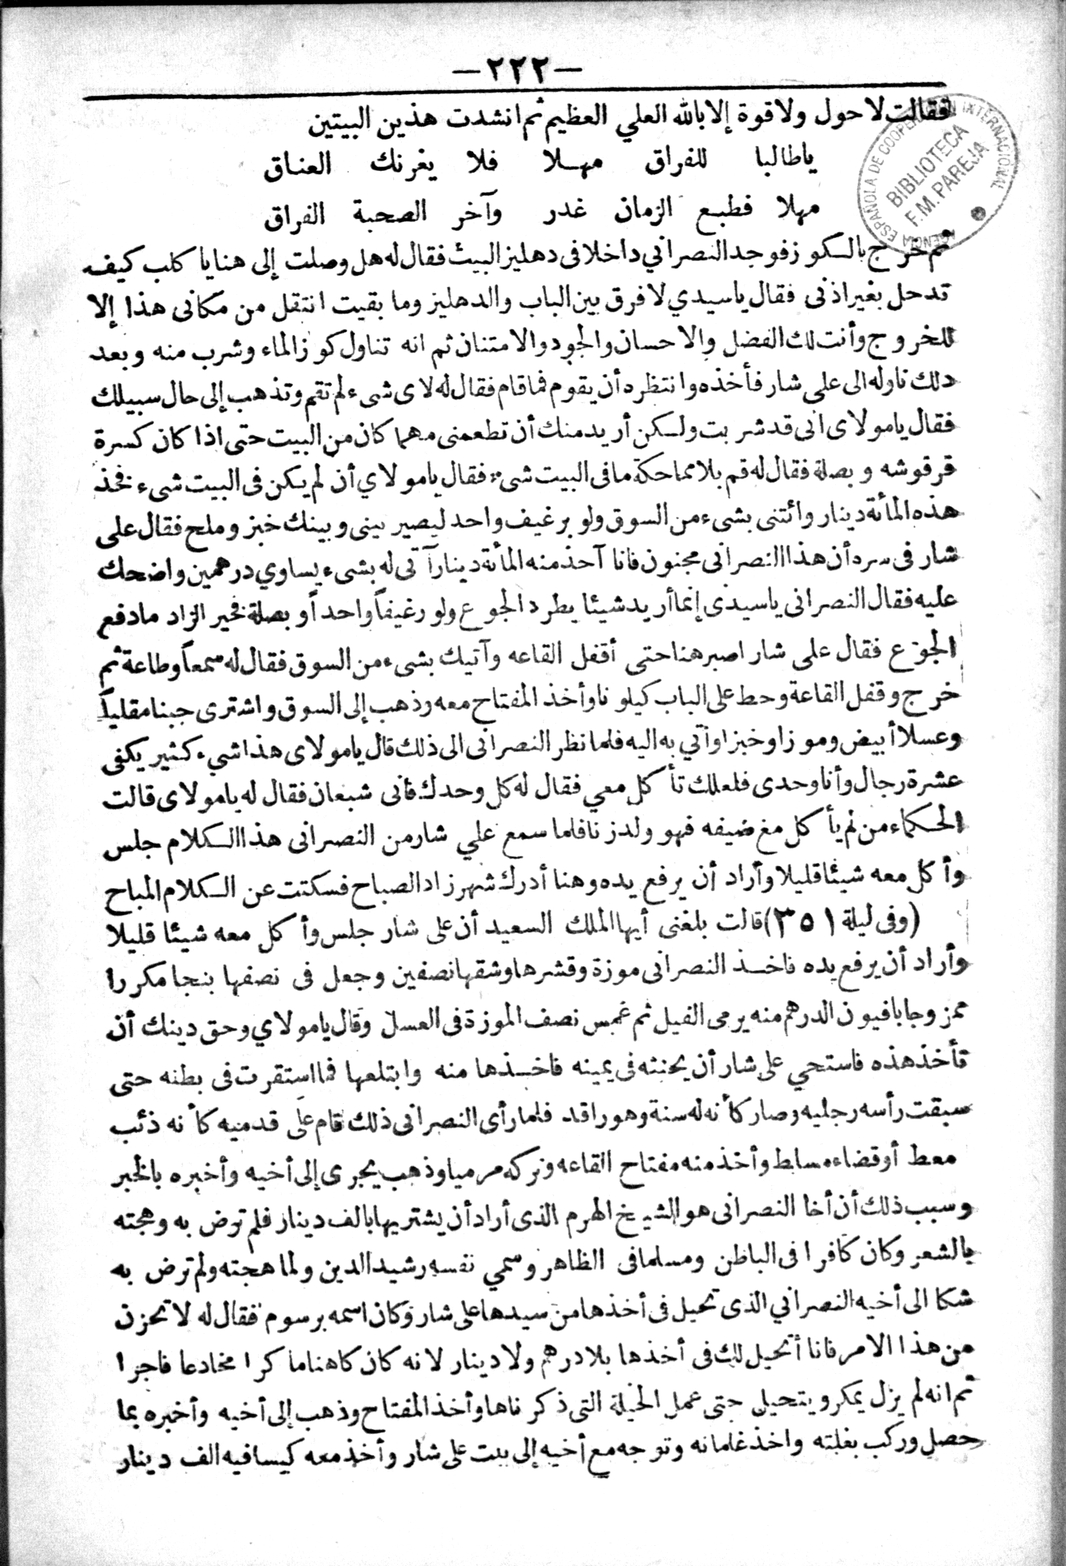 — ٢٢٢ —
فقالت لا حول ولا قوة إلا بالله العلي العظيم ثم انشدت هذين البيتين
ياطالبا للفراق مهلا فلا يغرنك العناق
مهلا فطبع الزمان غدر وآخر الصحبة الفراق
ثم خرج بالكوز فوجد النصراني داخلا فى دهليز البيت فقال له هل وصلت إلى هنا يا كلب كيف
تدخل بغير اذنى فقال ياسيدي لا فرق بين الباب والدهليز وما بقيت انتقل من مكانى هذا إلا
للخروج وأنت لك الفضل والاحسان والجود والامتنان ثم انه تناول كوز الماء وشرب منه وبعد
ذلك ناوله الى على شار فأخذه وانتظره أن يقوم فما قام فقال له لاى شىء لم تقم وتذهب إلى حال سبيلك
فقال يامولاى انى قد شربت ولكن أريد منك أن تطعمنى مهما كان من البيت حتى اذا كان كسرة
قرقوشه وبصلة فقال له قم بلا مماحكة مافى البيت شىء فقال يامولاي أن لم يكن فى البيت شىء فخذ
هذه المأنة دينار وائتنى بشىء من السوق ولو برغيف واحد ليصير بينى وبينك خبز وملح فقال على
شار فى سره أن هذا النصرانى مجنون فانا آخذ منه المأنة دينار آتى له بشىء يساوي درهمين واضحك
عليه فقال النصرانى ياسيدى إنما أريد شيئا يطرد الجوع ولو رغيفاً واحداً وبصلة فخير الزاد مادفع
الجوع فقال على شار اصبر هنا حتى أقفل القاعه وآتيك بشىء من السوق فقال له سمعاً وطاعة ثم
خرج وقفل القاعة وحط على الباب كيلونا وأخذ المفتاح معه وذهب إلى السوق واشترى جبنا مقلياً
وعسلا أبيض وموزا وخبزا وآتي به اليه فلما نظر النصرانى الى ذلك قال يامولاى هذا شيء كثير يكفى
عشرة رجال وأنا وحدى فلعلك تأكل معي فقال له كل وحدك فأنى شبعان فقال له يامولاى قالت
الحكماء من لم يأكل مع ضيفه فهو ولد زنا فلما سمع علي شار من النصرانى هذا الكلام جلس
وأكل معه شيئا قليلا وأراد أن يرفع يده وهنا أدرك شهرزاد الصباح فسكتت عن الكلام المباح
(وفى ليلة ٣٥١) قالت بلغنى أيها الملك السعيد أن على شار جلس وأكل معه شيئا قليلا
وأراد أن يرفع يده فاخذ النصرانى موزة وقشرها وشقها نصفين وجعل فى نصفها بنجا مكررا
ممزوجا بافيون الدرهم منه يرمى الفيل ثم غمس نصف الموزة فى العسل وقال يامولاي وحق دينك أن
تأخذ هذه فاستحي على شار أن يحنثه فى يمينه فاخذها منه وابتلعها فما استقرت فى بطنه حتى
سبقت رأسه رجليه وصار كأنه له سنة وهو راقد فلما رأى النصرانى ذلك قام على قدميه كأنه ذئب
معط أو قضاء مسلط وأخذ منه مفتاح القاعه وتركه مرميا وذهب يجرى إلى أخيه وأخبره بالخبر
وسبب ذلك أن أخا النصرانى هو الشيخ الهرم الذى أراد أن يشتريها بالف دينار فلم ترض به وهجته
بالشعر وكان كافرا فى الباطن ومسلما فى الظاهر وسمي نفسه رشيد الدين ولما هجته ولم ترض به
شكا الى أخيه النصراني الذى تحيل فى أخذها من سيدها على شار وكان اسمه برسوم فقال له لا تحزن
من هذا الامر فانا أتحيل لك فى أخذها بلا درهم ولا دينار لانه كان كاهنا ماكرا مخادعا فاجرا
ثم انه لم يزل يمكر ويتحيل حتى عمل الحيلة التى ذكرناها وأخذ المفتاح وذهب إلى أخيه وأخبره بما
حصل وركب بغلته واخذ غلمانه وتوجه مع أخيه إلى بيت على شار وأخذ معه كيسا فيه الف دينار
AGENCIA ESPAÑOLA DE COOPERACIÓN INTERNACIONAL
BIBLIOTECA
F.M. PAREJA